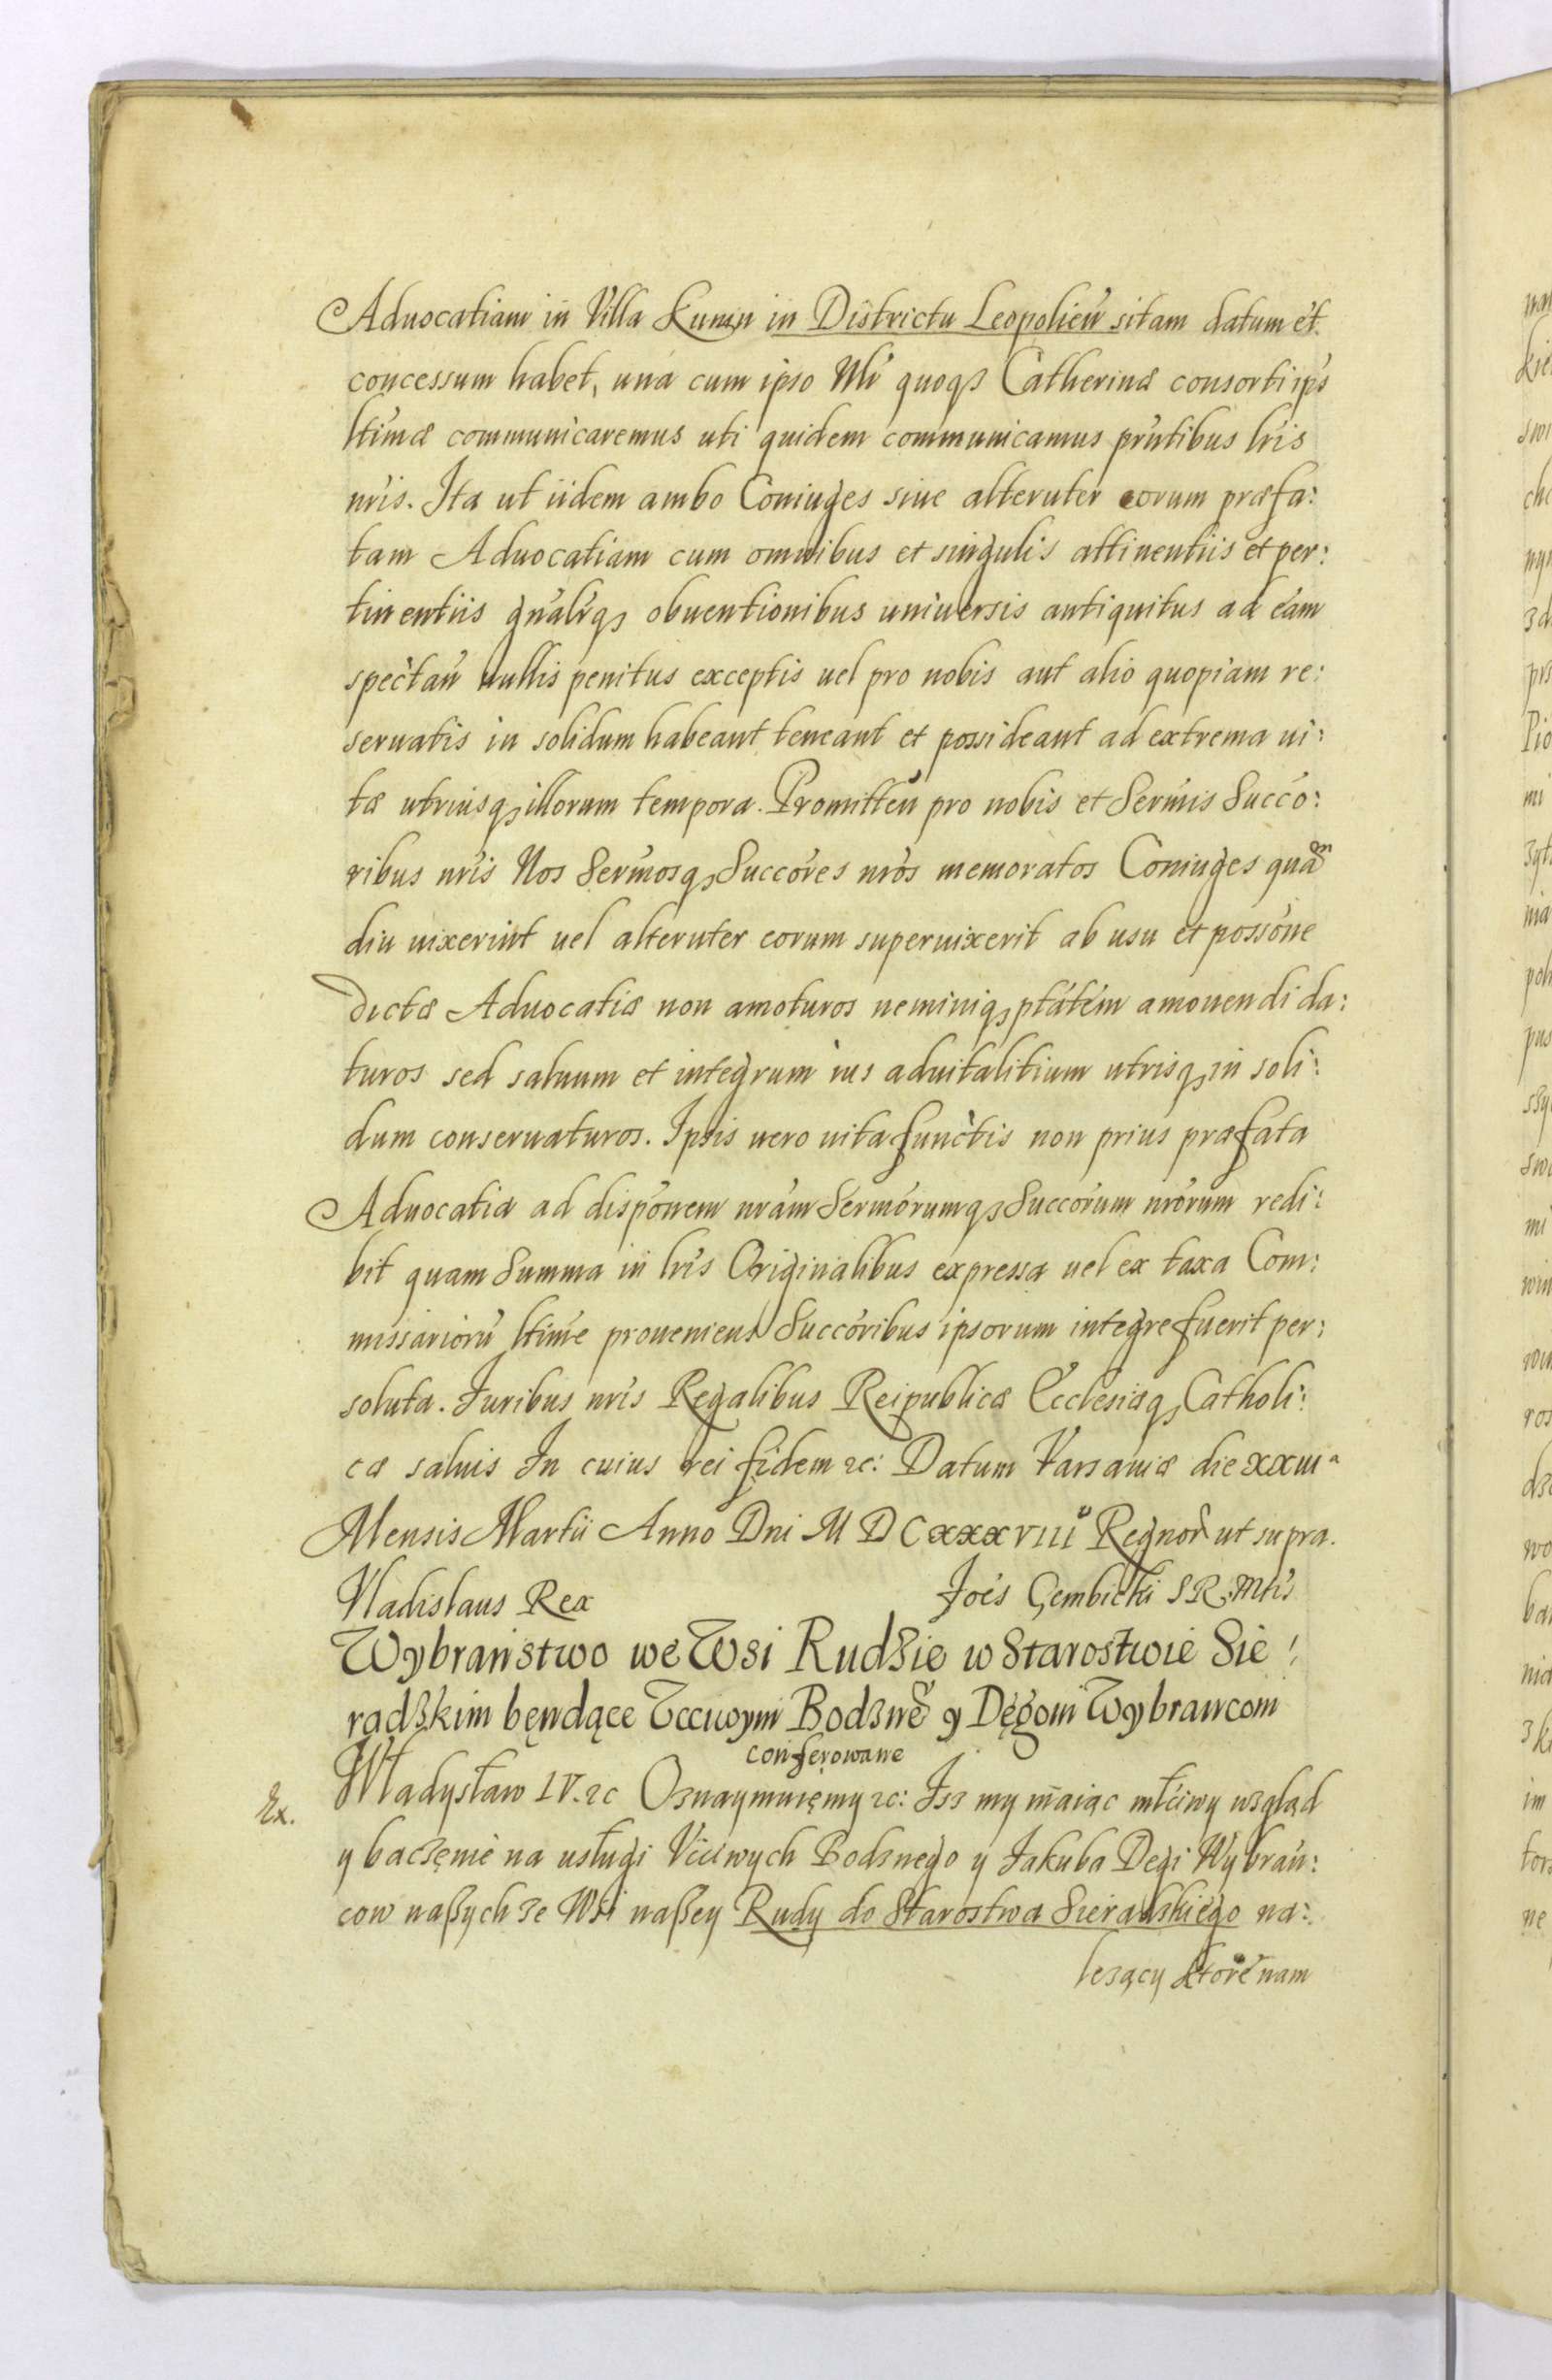 Aduocatiam in Villa Kunin in Districtu Leopolień sitam datum et
concessum habet, una cum ipso Mli quoqȝ Catherinæ consorti ips
ltimæ communicaremus uti quidem communicamus prntibus lris
nris. Ita ut iidem ambo Coniuges siue alteruter eorum præfa:
tam Aduocatiam cum omnibus et singulis attinentiis et per:
tinentiis gnalrqȝ obuentionibus uniuersis antiquitus ad eam
spectań nullis penitus exceptis uel pro nobis aut alio quopiam re:
seruatis in solidum habeant teneant et possideant ad extrema ui:
tæ utriusqȝ illorum tempora. Promitteń pro nobis et Sermis Succo:
ribus nris Nos Sermosqȝ Succores nros memoratos Coniuges quam
diu uixerint uel alteruter eorum superuixerit ab usu et possone
dictæ Aduocatiæ non amoturos neminiqȝ ptatem amouendi da:
turos sed saluum et integrum ius aduitalitium utrisqȝ in soli:
dum conseruaturos. Ipsis uero uita functis non prius præfata
Aduocatia ad disponem nram Sermorumqȝ Succorum nrorum redi:
bit quam Summa in lris Originalibus expressa uel ex taxa Com:
missariorū ltime proueniens Succoribus ipsorum integre fuerit per:
soluta. Juribus nris Regalibus Reipublicæ Ecclesiæqȝ Catholi:
cæ saluis In cuius rei fidem ꝛc: Datum Varsauiæ die XXIII a
Mensis Martii Anno Dni M D C XXXVIII o Regnor ut supra.
Vladislaus Rex Joes Gembicki S R Mtis
Wybraństwo we Wsi Rudzie w Starostwie Sie:
radzkim będące Vccwym Bodzne y Dęgowi Wybrancom
conferowane
Ex. Władysław IV. ꝛc Oznaymuięmy ꝛc: Isz my maiąc młciwy wzgląd
y baczęnie na usługi Vcciwych Bodznego y Jakuba Degi Wybrań:
cow naßych ze Wsi naßey Rudy do Starostwa Sieradzkiego na:
lezący ktore nam